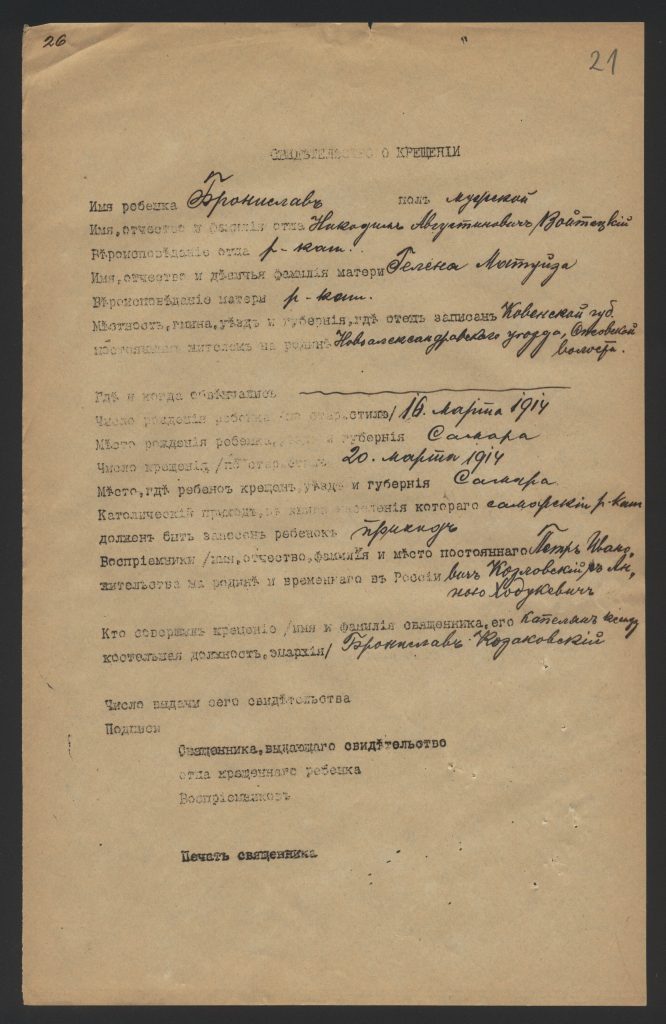 26
21
СВИДѢТЕЛЬСТВО О КРЕЩЕНІИ
Имя ребенка Брониславъ полъ мужской
Имя,отчество и фамилія отца Никодимъ Августиновичъ Войтецкій
Вѣроисповѣданіе отца р-кат.
Имя,отчество и дѣвичья фамилія матери Гелена Матуйза
Вѣроисповѣданіе матери р-кат.
Мѣстность,гмина,уѣздъ и губернія,гдѣ отецъ записанъ Ковенской губ.
постояннымъ жителемъ на родинѣ Новоалександровского уѣзда,
волости.
Гдѣ и когда обвѣнчались
Число рожденія ребенка /по стар.стилю/ 16. марта 1914
Мѣсто рожденія ребенка, уѣздъ и губернія Самара
Число крещенія /по стар.стилю 20. марта 1914
Мѣсто,гдѣ ребенок крещен,уѣздъ и губернія Самара.
Католическій приходъ,въ книги населенія котораго самарскій р-кат
долженъ быть занесенъ ребенокъ приходъ
Воспріемники /имя,отчество,фамилія и мѣсто постояннаго Петръ Ивано-
жительства на родинѣ и временнаго въ Россіи вичъ Козловскій съ Ан-
ною Ходукевичъ
Кто совершилъ крещеніе /имя и фамилія священника,его капеланъ
костельная должность,эпархія/ Брониславъ Козаковскій
Число выдачи сего свидѣтельства
Подписи
Священника,выдающаго свидѣтельство
отца крещеннаго ребенка
Воспріемниковъ
Печать священника